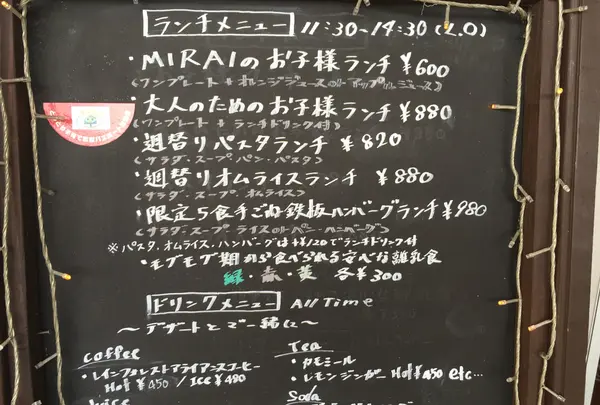 ランチメニュー 11:30~14:30(L.O)
・MIRAIのお子様ランチ ¥600
(ワンプレート+オレンジジュースorアップルジュース)
・大人のためのお子様ランチ ¥880
(ワンプレート+ランチドリンク付)
・週替りパスタランチ ¥820
(サラダ・スープ・パン・パスタ)
・週替りオムライスランチ ¥880
(サラダ・スープ・オムライス)
・限定5食手ごね鉄板ハンバーグランチ ¥980
(サラダ・スープ・ライスorパン・ハンバーグ)
※パスタ、オムライス、ハンバーグは+¥120でランチドリンク付
・モグモグ期から食べられる安心な離乳食
緑・赤・黄 各¥300
ドリンクメニュー All Time
~デザートとご一緒に~
coffee
・レインフォレストアライアンスコーヒー
Hot ¥450 / Ice ¥480
Juice
Tea
・カモミール
・レモンジンジャー Hot ¥450 etc…
Soda